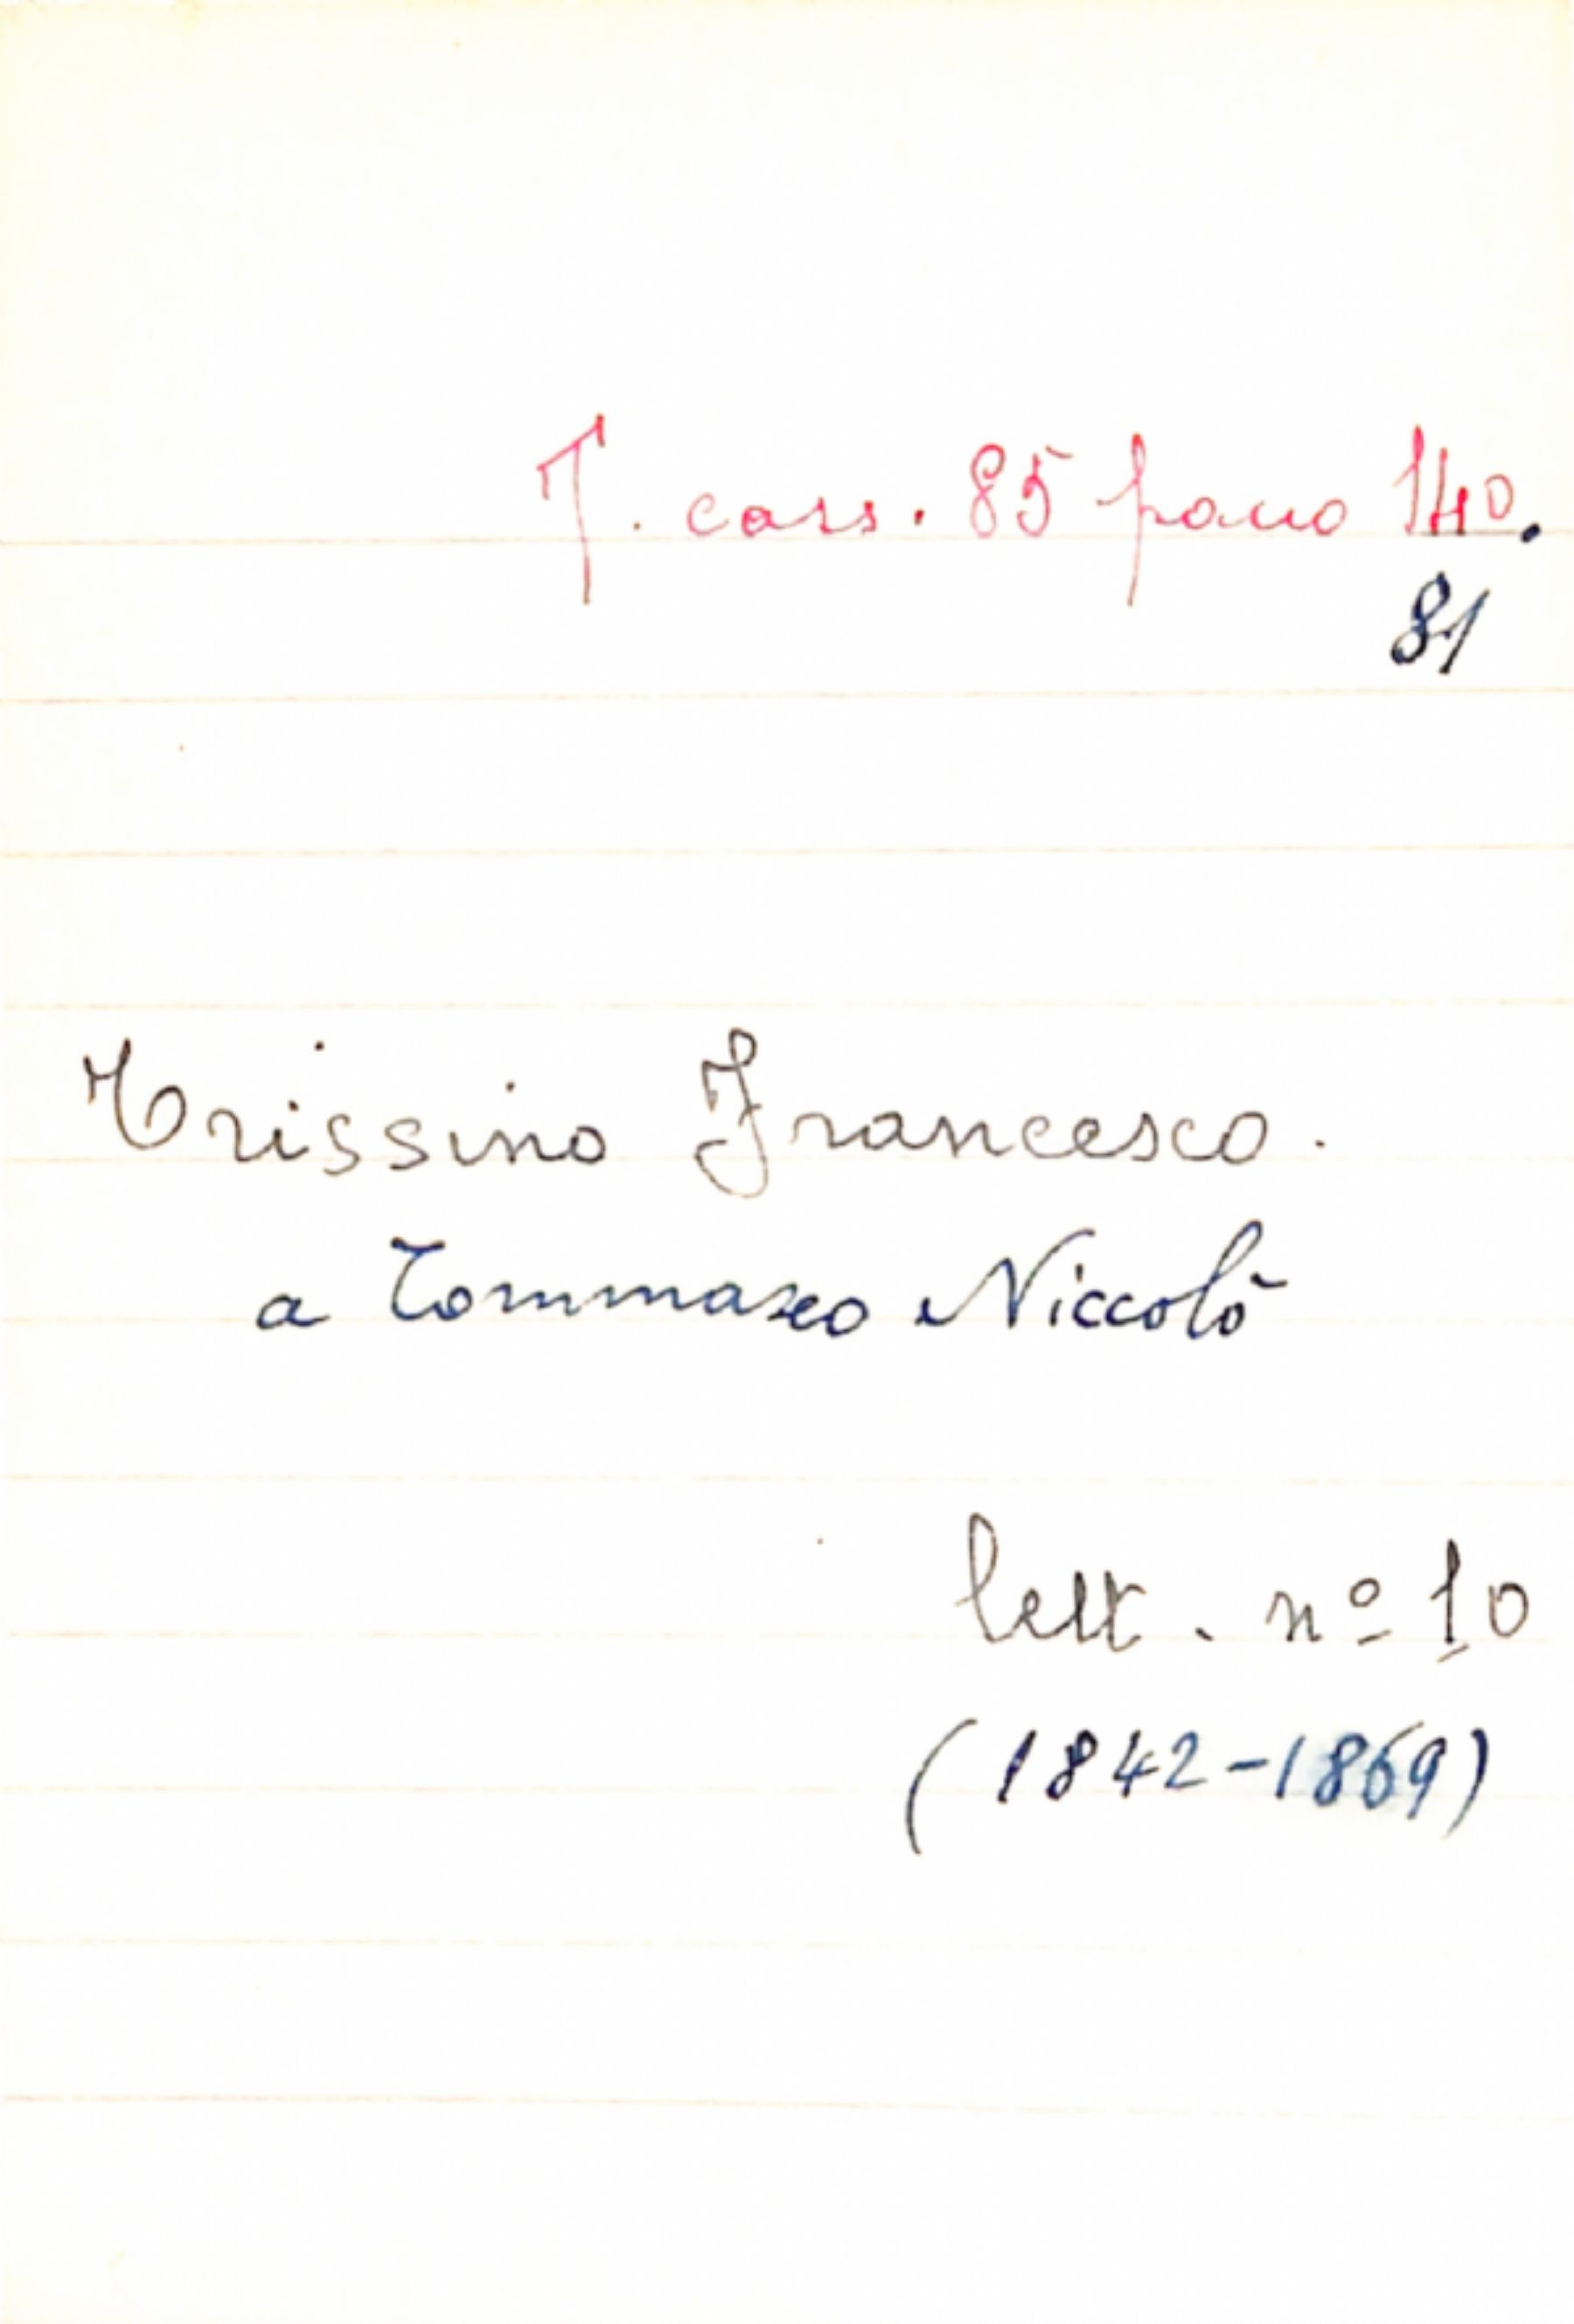 T. cass. 85 pacco 140.
81
Trissino Francesco.
a Tommaseo Niccolò
lett. nº 10
(1842-1869)